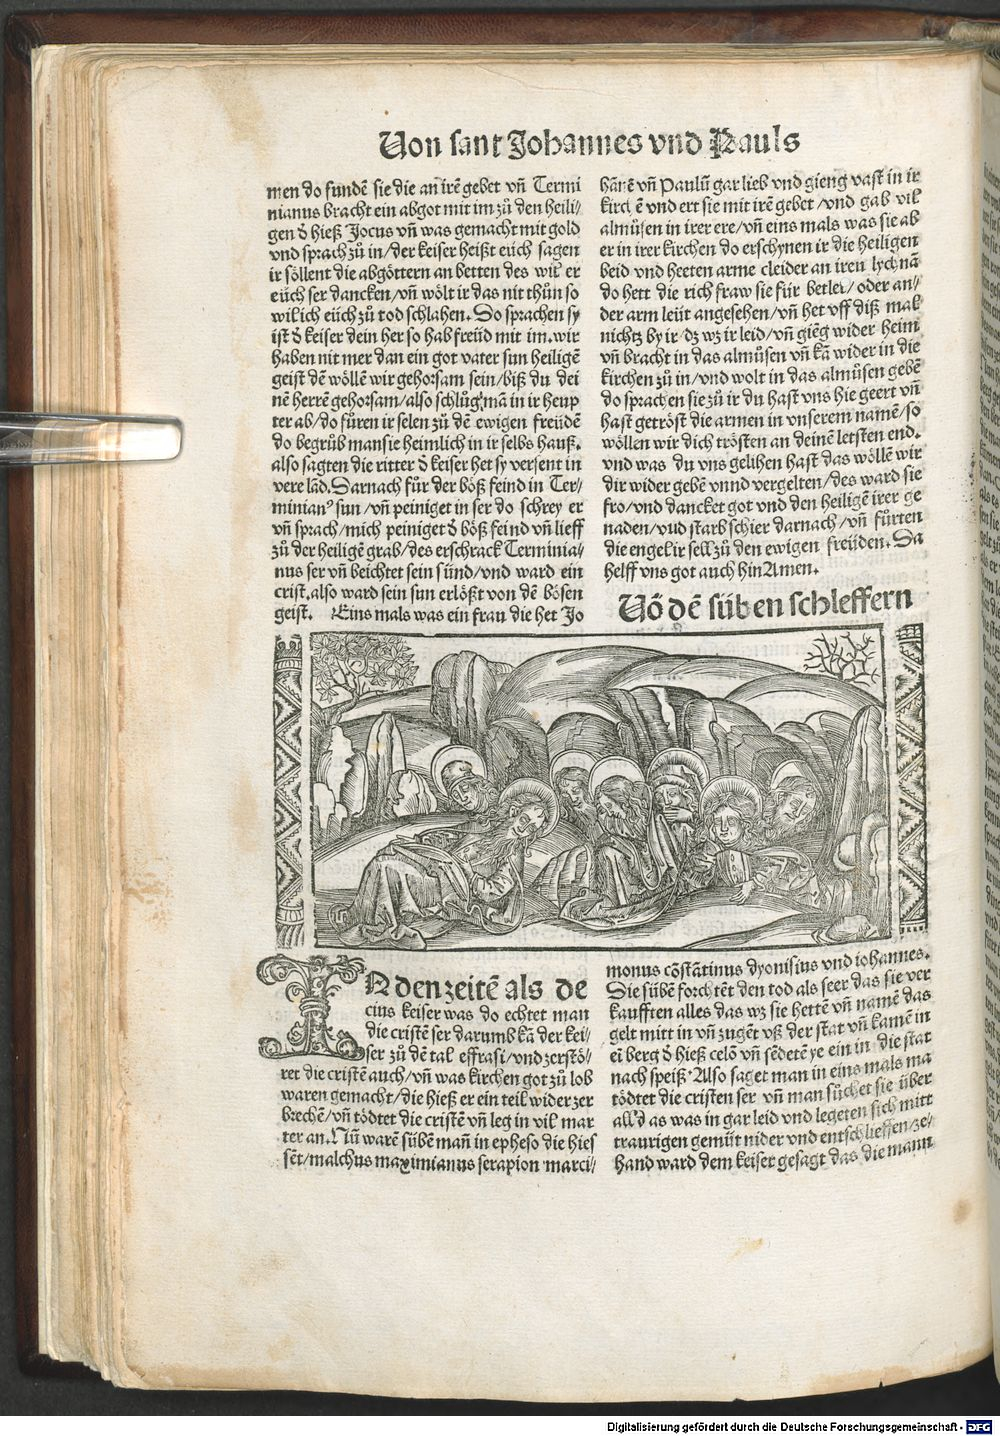 Von sant Johannes vnd Pauls
men do fundē sie die an irē gebet vñ Termi
nianus bracht ein abgot mit im zů den heili/
gen d̓ hieß Jocus vñ was gemacht mit gold
vnd sprach zů in/der keiser heißt eüch sagen
ir söllent die abgöttern an betten des wir er
eüch ser dancken/vñ wölt ir das nit thůn so
wil ich eüch zů tod schlahen. Do sprachen sy
ist d̓ keiser dein her so hab freüd mit im.wir
haben nit mer dan ein got vater sun heiligē
geist dē wöllē wir gehorsam sein/biß du dei
nē herrē gehorsam/also schlůg mā in ir heup
ter ab/do fůren ir selen zů dē ewigen freüdē
do begrůb man sie heimlich in ir selbs hauß.
also sagten die ritter d̓ keiser het sy versent in
vere lād. Darnach fůr der böß feind in Ter/
minianꝰ sun/vñ peiniget in ser do schrey er
vñ sprach/mich peiniget d̓ böß feind vñ lieff
zů der heiligē grab/des erschrack Terminia/
nus ser vñ beichtet sein sünd/vnd ward ein
crist.also ward sein sun erlößt von dē bösen
geist. Eins mals was ein frau die het Jo
hānē vñ Paulū gar lieb vnd gieng vast in ir
kirchē vnd ert sie mit irē gebet/vnd gab vil
almůsen in irer ere/vñ eins mals was sie ab
er in irer kirchen do erschynen ir die heiligen
beid vnd heeten arme cleider an iren lychnā
do hett die rich fraw sie für betler/oder an/
der arm leüt angesehen/vñ het vff diß mal
nichtz by ir dz wz ir leid/vñ giēg wider heim
vñ bracht in das almůsen vñ kā wider in die
kirchen zů in/vnd wolt in das almůsen gebē
do sprachen sie zů ir du hast vns hie geert vñ
hast getröst die armen in vnserem namē/so
wöllen wir dich trösten an deinē letsten end.
vnd was du vns gelihen hast das wöllē wir
dir wider gebē vnnd vergelten/des ward sie
fro/vnd dancket got vnd den heiligē irer ge
naden/vnd starb schier darnach/vñ fůrten
die engel ir sell zů den ewigen freüden. Da
helff vns got auch hin Amen.
Vō dē süben schleffern
IN den zeitē als de
cius keiser was do echtet man
die cristē ser darumb kā der kei/
ser zů dē tal effrasi/vnd zerstö/
ret die cristē auch/vñ was kirchen got zů lob
waren gemacht/die hieß er ein teil wider zer
brechē/vñ tödtet die cristē vñ leg in vil mar
ter an. Nū warē sübē mañ in epheso die hies
sēt/malchus maximianus serapion marci/
monus cōstātinus dyonisius vnd iohannes.
Die sübē forchtēt den tod als seer das sie ver
kaufften alles das wz sie hettē vñ namē das
gelt mitt in vñ zugēt vß der stat vñ kamē in
ei berg d̓ hieß celō vñ sēdetē ye ein in die stat
nach speiß. Also saget man in eins mals ma
tödtet die cristen ser vñ man süchet sie über
all d̓ as was in gar leid vnd legeten sich mitt
traurigen gemüt nider vnd entschlieffen/ze/
hand ward dem keiser gesagt das die mann
Digitalisierung gefördert durch die Deutsche Forschungsgemeinschaft - DFG